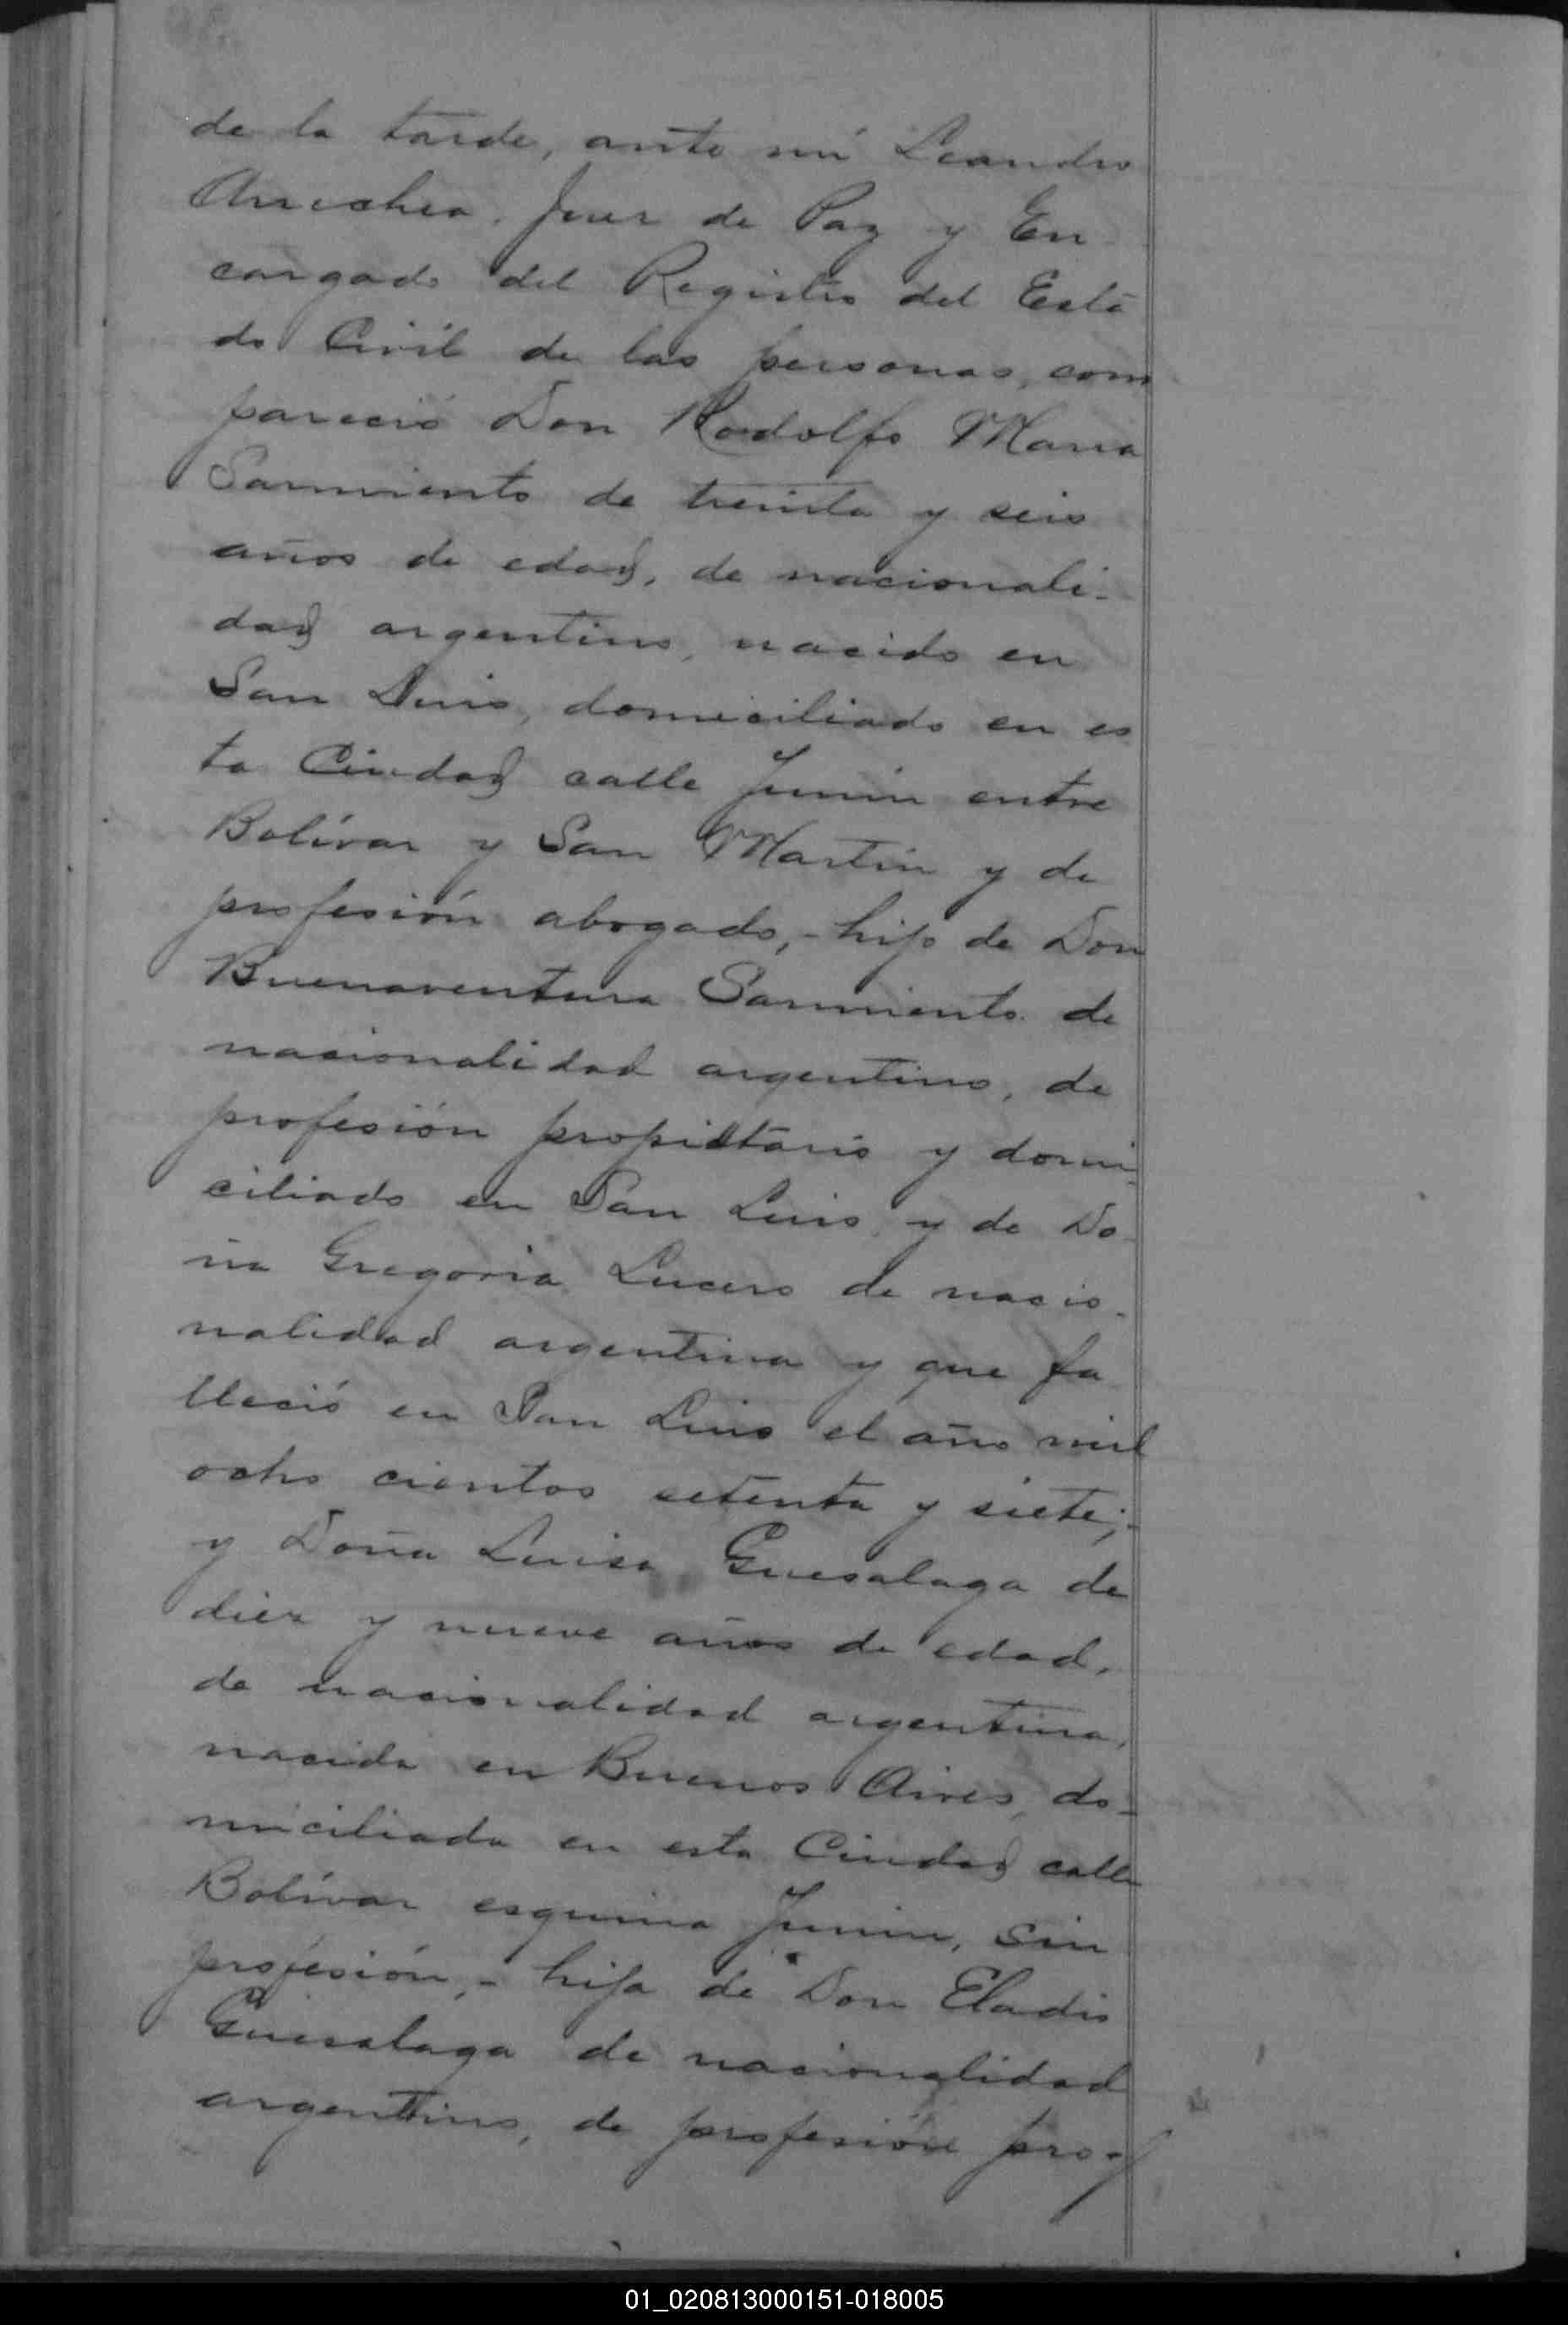 de la tarde, ante mí Leandro
Arrechea. Juez de Paz y En
cargado del Registro del Esta
do Civil de las personas, com
pareció Don Rodolfo Maria
Sarmiento de treinta y seis
años de edad, de nacionali-
dad argentino, nacido en
San Luis, domiciliado en es
ta Ciudad calle Junin entre
Bolívar y San Martin y de
profesión abogado,- hijo de Don
Buenaventura Sarmiento de
nacionalidad argentino, de
profesión propietario y domi-
ciliado en San Luis, y de Do-
ña Gregoria Lucero de nacio-
nalidad argentina y que fa
lleció en San Luis el año mil
ocho cientos setenta y siete;-
y Doña Luisa Guesalaga de
diez y nueve años de edad,
de nacionalidad argentina,
nacida en Buenos Aires, do-
miciliada en esta Ciudad calle
Bolívar esquina Junin, sin
profesión,- hija de Don Eladio
Guesalaga de nacionalidad
argentino, de profesión pro-
01_020813000151-018005